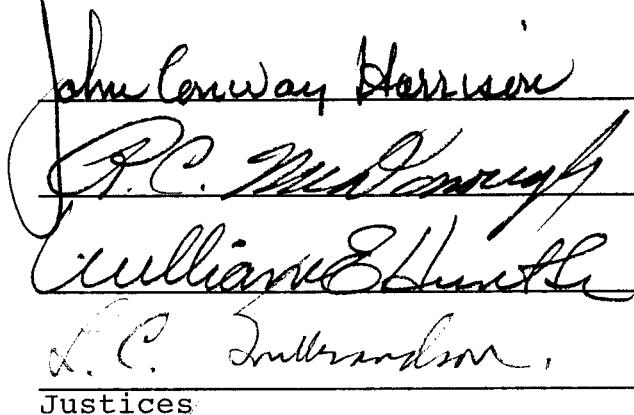 John Conway Harrison
R. C. McDonough
William E Hunt Sr
L. C. Gulbrandson.
Justices